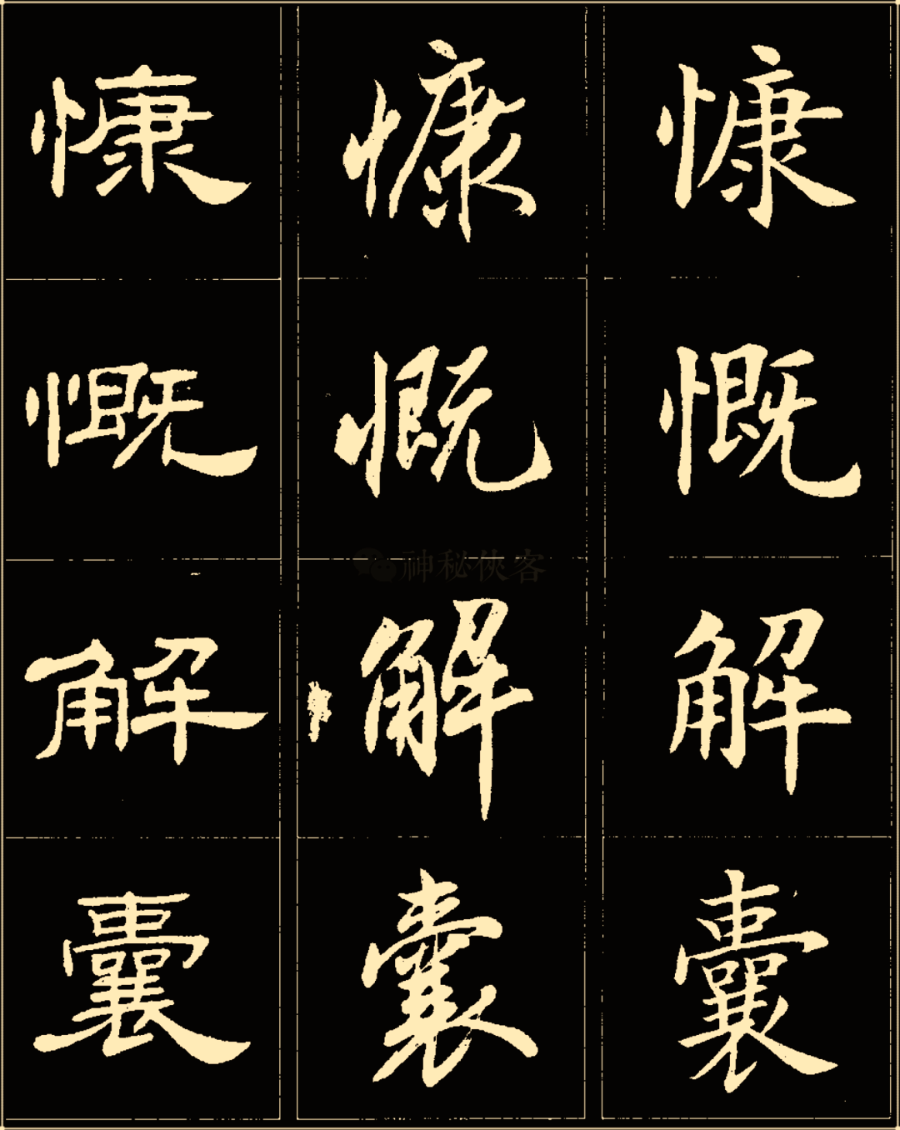 慷 慷 慷
慨 慨 慨
神秘侠客
解 解 解
囊 囊 囊